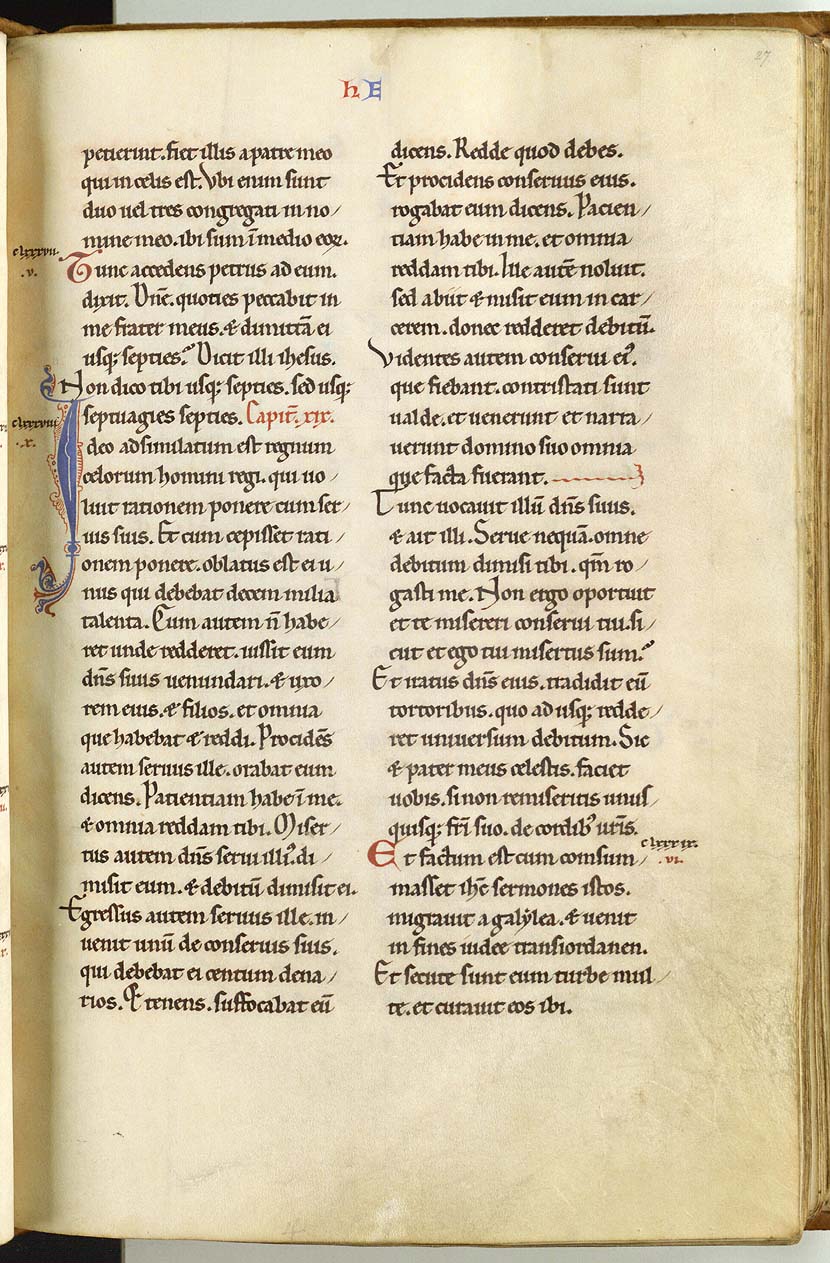 27
hE
petierint. fiet illis a patre meo
qui in celis est. Vbi enim sunt
duo uel tres congregati in no/
mine meo. ibi sum ī medio eoꝝ.
clxxxvii.
.v.
Tunc accedens petrus ad eum.
dixit. Dn̄e. quoties peccabit in
me frater meus. & dimittā ei
usq; septies? Dicit illi ihesus.
Non dico tibi usq; septies. sed usq;
septuagies septies. Capit̄. xix.
clxxxviii
.x.
Ideo adsimulatum est regnum
celorum homini regi. qui uo/
luit rationem ponere cum ser/
uis suis. Et cum cepisset rati/
onem ponere. oblatus est ei u/
nus qui debebat decem milia
talenta. Cum autem n̄ habe/
ret unde redderet. iussit eum
dn̄s suus uenundari. & uxo/
rem eius. & filios. et omnia
que habebat & reddi. Procidēs
autem seruus ille. orabat eum
dicens. Patientiam habe ī me.
& omnia reddam tibi. Miser/
tus autem dn̄s serui illiꝰ. di/
misit eum. & debitū dimisit ei.
Egressus autem seruus ille. in/
uenit unū de conseruis suis.
qui debebat ei centum dena/
rios. & tenens. suffocabat eū
dicens. Redde quod debes.
Et procidens conseruus eius.
rogabat eum dicens. Pacien/
tiam habe in me. et omnia
reddam tibi. Ille autē noluit.
sed abiit & misit eum in car/
cerem. donec redderet debitū.
Videntes autem conserui eiꝰ.
que fiebant. contristati sunt
ualde. et uenerunt et narra/
uerunt domino suo omnia
que facta fuerant.
Tunc uocauit illū dn̄s suus.
& ait illi. Serue nequā. omne
debitum dimisi tibi. qm̄ ro/
gasti me. Non ergo oportuit
et te misereri conserui tui. si/
cut et ego tui misertus sum?
Et iratus dn̄s eius. tradidit eū
tortoribus. quo ad usq; redde/
ret uniuersum debitum. Sic
& pater meus celestis. faciet
uobis. si non remiseritis unus/
quisq; fr̄i suo. de cordibꝰ ur̄is.
clxxxix.
.vi.
Et factum est cum consum/
masset ih̄c sermones istos.
migrauit a galylea. & uenit
in fines iudee transiordanen.
Et secute sunt eum turbe mul/
te. et curauit eos ibi.